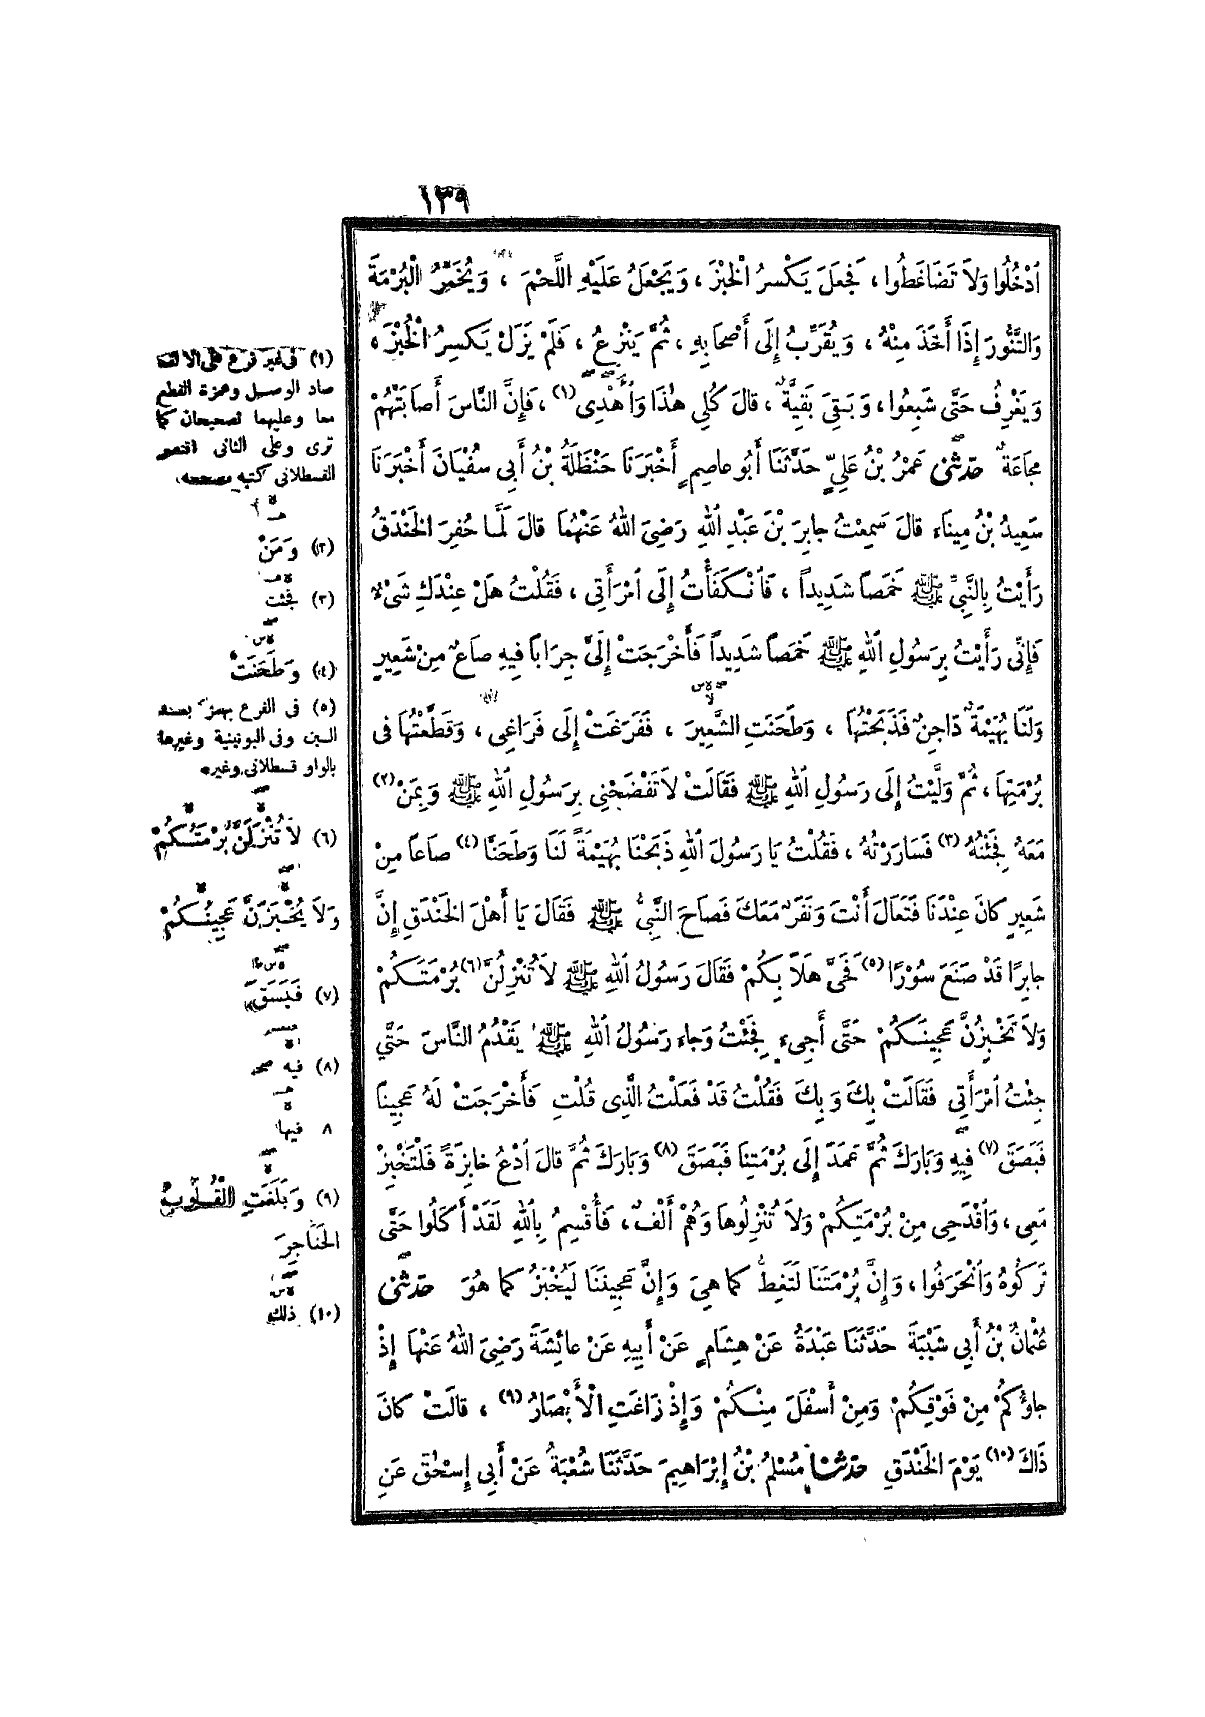 ١٣٩
اُدْخُلُوا وَلاَ تَضَاغَطُوا ، فَجَعَلَ يَكْسِرُ الْخُبْزَ ، وَيَجْعَلُ عَلَيْهِ اللَّحْمَ ، وَيُخَمِّرُ الْبُرْمَةَ
وَالتَّنُّورَ إِذَا أَخَذَ مِنْهُ ، وَيُقَرِّبُ إِلَى أَصْحَابِهِ ، ثُمَّ يَنْزِعُ ، فَلَمْ يَزَلْ يَكْسِرُ الْخُبْزَ ،
وَيَغْرِفُ حَتَّى شَبِعُوا ، وَبَقِيَ بَقِيَّةٌ ، قالَ كُلِي هٰذَا وَأَهْدِي (١) ، فَإِنَّ النَّاسَ أَصَابَتْهُمْ
مَجَاعَةٌ حَدَّثَنِي عَمْرُو بْنُ عَلِيٍّ حَدَّثَنَا أَبُو عاصِمٍ أَخْبَرَنَا حَنْظَلَةُ بْنُ أَبِي سُفْيَانَ أَخْبَرَنَا
سَعِيدُ بْنُ مِينَاء قالَ سَمِعْتُ جابِرَ بْنَ عَبْدِ اللهِ رَضِيَ اللهُ عَنْهُمَا قالَ لَمَّا حُفِرَ الْخَنْدَقُ
رَأَيْتُ بِالنَّبِيِّ ﷺ خَمَصاً شَدِيداً ، فَانْكَفَأْتُ إِلَى امْرَأَتِي ، فَقُلْتُ هَلْ عِنْدَكِ شَيْءٌ
فَإِنِّي رَأَيْتُ بِرَسُولِ اللهِ ﷺ خَمَصاً شَدِيداً فَأَخْرَجَتْ إِلَيَّ جِرَاباً فِيهِ صَاعٌ مِنْ شَعِيرٍ
وَلَنَا بُهَيْمَةٌ دَاجِنٌ فَذَبَحْتُهَا ، وَطَحَنَتِ الشَّعِيرَ ، فَفَرَغَتْ إِلَى فَرَاغِي ، وَقَطَّعْتُهَا في
بُرْمَتِهَا ، ثُمَّ وَلَّيْتُ إِلَى رَسُولِ اللهِ ﷺ فَقَالَتْ لاَ تَفْضَحْنِي بِرَسُولِ اللهِ ﷺ وَبِمَنْ (٢)
مَعَهُ فَجِئْتُهُ (٣) فَسَارَرْتُهُ ، فَقُلْتُ يَا رَسُولَ اللهِ ذَبَحْنَا بُهَيْمَةً لَنَا وَطَحَنَّا (٤) صَاعاً مِنْ
شَعِيرٍ كانَ عِنْدَنَا فَتَعَالَ أَنْتَ وَنَفَرٌ مَعَكَ فَصَاحَ النَّبِيُّ ﷺ فَقَالَ يَا أَهْلَ الْخَنْدَقِ إِنَّ
جابِرًا قَدْ صَنَعَ سُوْرًا (٥) فَحَيَّ هَلاً بِكُمْ فَقَالَ رَسُولُ اللهِ ﷺ لاَ تُنْزِلُنَّ (٦) بُرْمَتَكُمْ
وَلاَ تَخْبِزُنَّ عَجِينَكُمْ حَتَّى أَجِيءَ فَجِئْتُ وَجاء رَسُولُ اللهِ ﷺ يَقْدُمُ النَّاسَ حَتَّى
جِئْتُ امْرَأَتِي فَقَالَتْ بِكَ وَبِكَ فَقُلْتُ قَدْ فَعَلْتُ الَّذِي قُلْتِ فَأَخْرَجَتْ لَهُ عَجِيناً
فَبَصَقَ (٧) فِيهِ وَبَارَكَ ثُمَّ عَمَدَ إِلَى بُرْمَتِنَا فَبَصَقَ (٨) وَبَارَكَ ثُمَّ قالَ ادْعُ خابِزَةً فَلْتَخْبِزْ
مَعِي ، وَاقْدَحِي مِنْ بُرْمَتِكُمْ وَلاَ تُنْزِلُوهَا وَهُمْ أَلْفٌ ، فَأُقْسِمُ بِاللهِ لَقَدْ أَكَلُوا حَتَّى
تَرَكُوهُ وَانْحَرَفُوا ، وَإِنَّ بُرْمَتَنَا لَتَغِطُّ كما هِيَ وَإِنَّ عَجِينَنَا لَيُخْبَزُ كما هُوَ حَدَّثَنِي
عُثْمَانُ بْنُ أَبِي شَيْبَةَ حَدَّثَنَا عَبْدَةُ عَنْ هِشَامٍ عَنْ أَبِيهِ عَنْ عائِشَةَ رَضِيَ اللهُ عَنْهَا إِذْ
جاؤُكُمْ مِنْ فَوْقِكُمْ وَمِنْ أَسْفَلَ مِنْكُمْ وَإِذْ زَاغَتِ الْأَبْصَارُ (٩) ، قالَتْ كانَ
ذَاكَ (١٠) يَوْمَ الْخَنْدَقِ حَدَّثَنَا مُسْلِمُ بْنُ إِبْرَاهِيمَ حَدَّثَنَا شُعْبَةُ عَنْ أَبِي إِسْحٰقَ عَنِ
(١) في غير فرع على الالف
صاد الوصل وهمزة القطع
معا وعليهما تصحيحان كما
ترى وعلى الثاني اقتصر
القسطلاني كتبه مصححه
(٢) وَمَنْ
(٣) فجئت
(٤) وَطَحَنَتْ
(٥) في الفرع بهمز بعد
السين وفي اليونينية وغيرها
بالواو قسطلاني وغيره
(٦) لاَ تُنْزَلَنَّ بُرْمَتُكُمْ
وَلاَ يُخْبَزَنَّ عَجِينُكُمْ
(٧) فَبَسَقَ
(٨) فيه صحـ
٨ فيها
(٩) وَبَلَغَتِ الْقُلُوبُ
الْحَنَاجِرَ
(١٠) ذلك